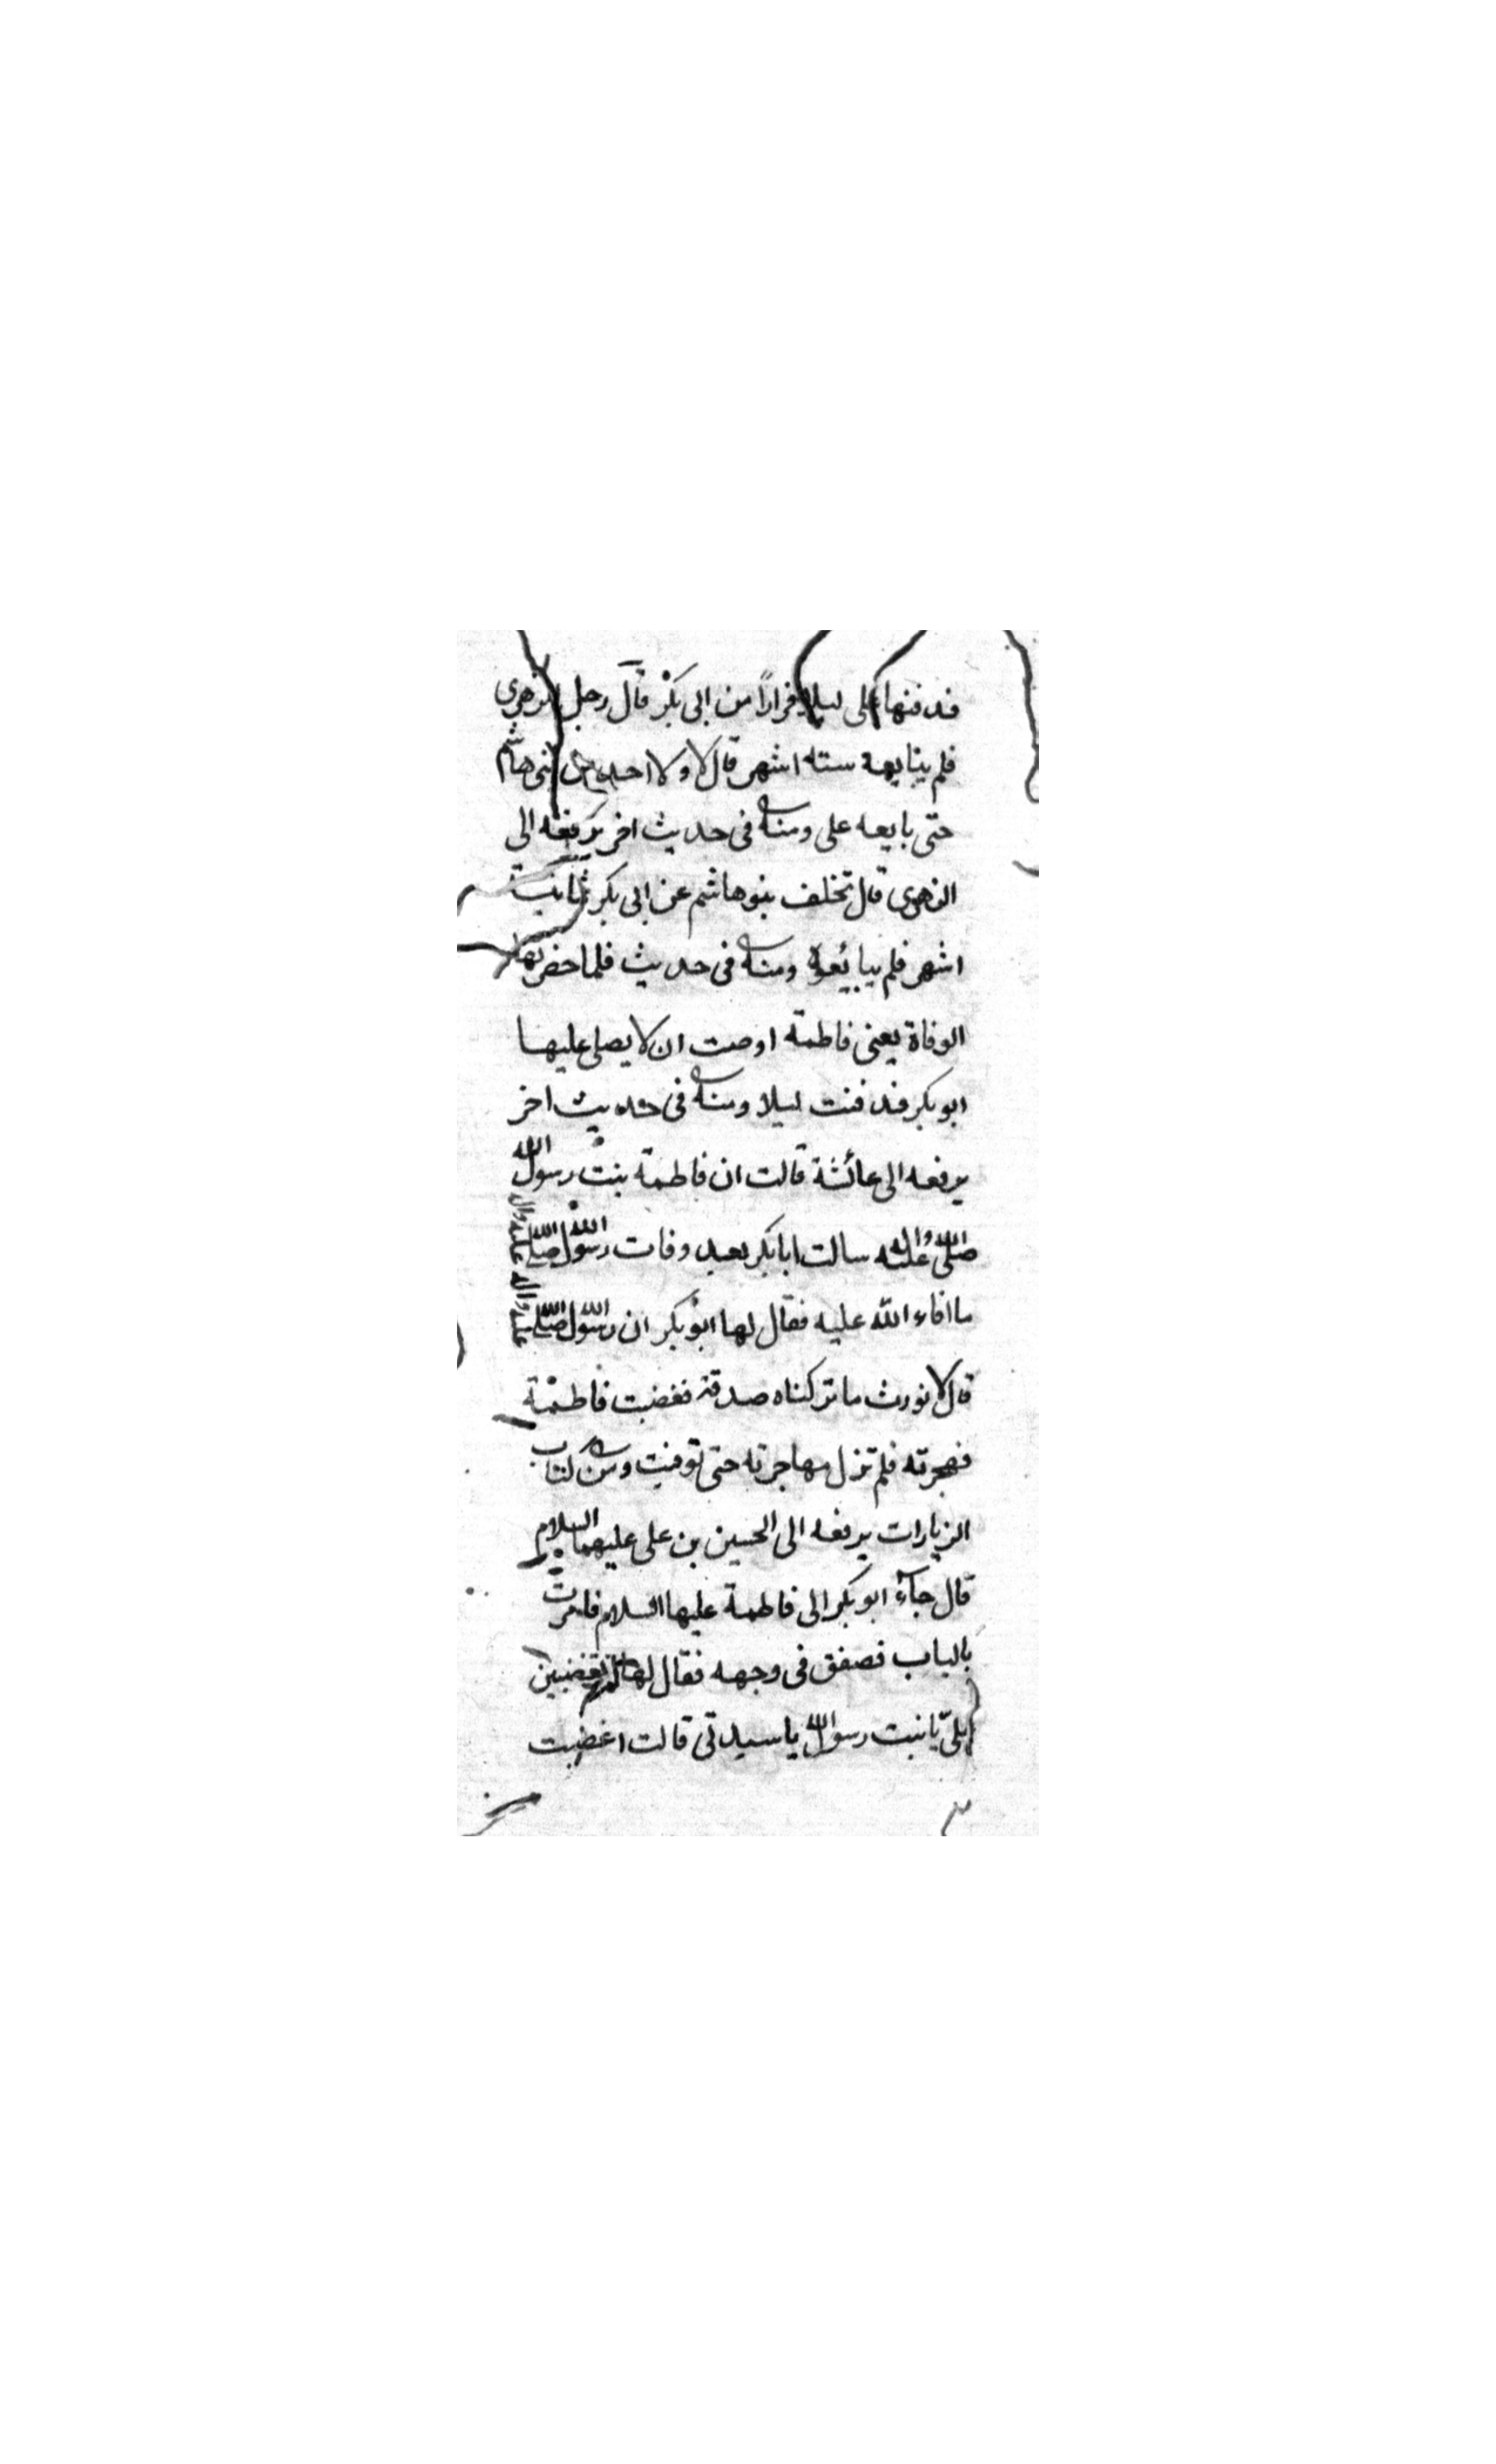 فدفنها على ليلا فرارًا من ابى بكر قال رجل للزهرى
فلم يبايعه سته اشهر قال لا ولا احد من بنى هاشم
حتى بايعه على ومنه فى حديث اخر يرفعه الى
الزهرى قال تخلف بنو هاشم عن ابى بكر ثمانية
اشهر فلم يبايعوه ومنه فى حديث فلما حضرتها
الوفاة يعنى فاطمة اوصت ان لا يصلى عليها
ابو بكر فدفنت ليلا ومنه فى حديث اخر
يرفعه الى عائشة قالت ان فاطمة بنت رسول الله
صلى الله عليه واله سالت ابا بكر بعد وفات رسول الله صلى الله عليه واله
ما افاء الله عليه فقال لها ابو بكر ان رسول الله صلى الله عليه واله
قال لا نورث ما تركناه صدقة فغضبت فاطمة
فهجرته فلم تزل مهاجرته حتى توفيت ومن كتاب
الزيارات يرفعه الى الحسين بن على عليهما السلام
قال جاء ابو بكر الى فاطمة عليها السلام فامرت
بالباب فصفق فى وجهه فقال لها تغضبين
على يا بنت رسول الله يا سيدتى قالت اغضبت